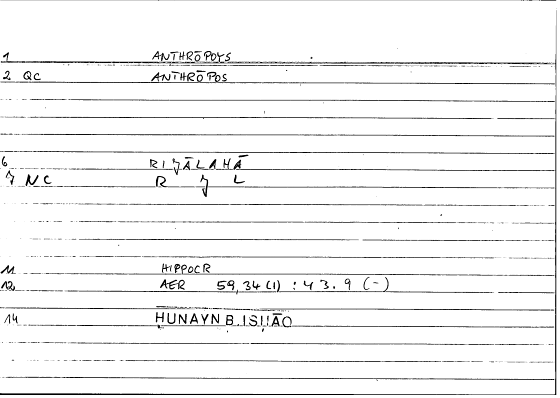 1 ANTHRŌPOYS
2 QC ANTHRŌPOS
6 RIJĀLAHĀ
7 NC R J L
11 HIPPOCR
12 AER 59,34(1) : 43.9 (-)
14 ḤUNAYN B. ISḤĀQ